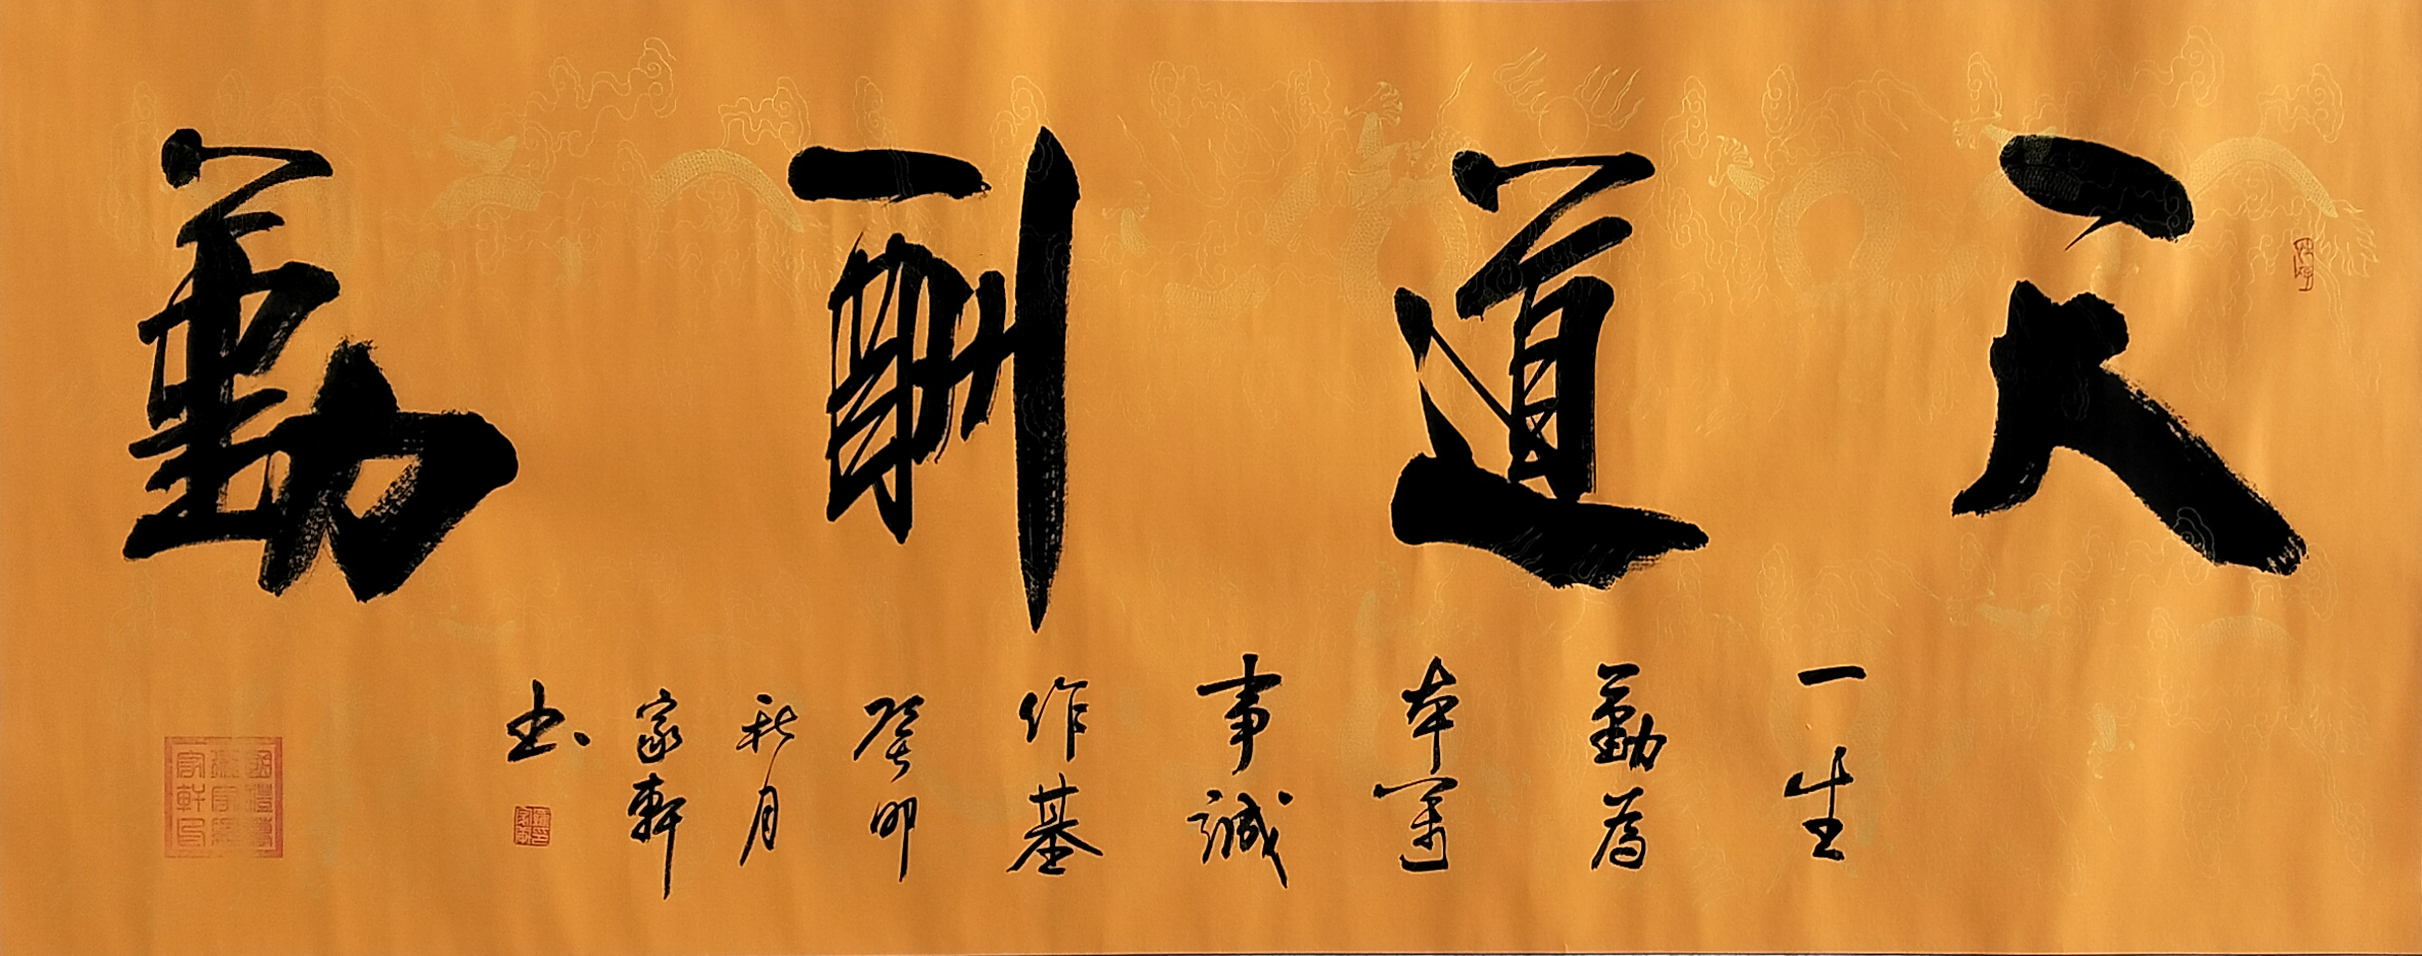 天道酬勤
一生
勤為
本萬
事誠
作基
癸卯
秋月
家軒
书